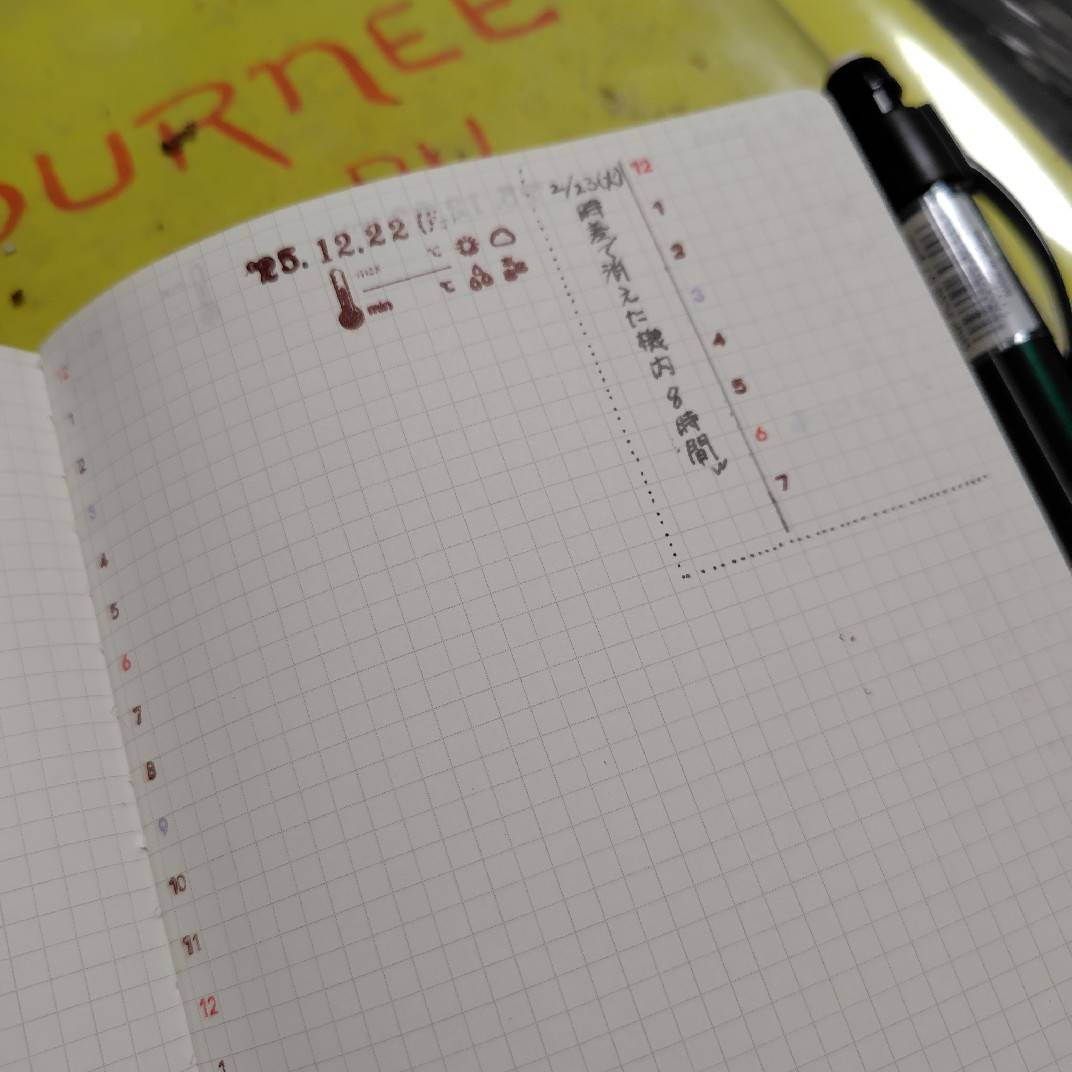 OURNEE
'25.12.22 (
max ℃
min ℃
12
1
2
3
4
5
6
7
8
9
10
11
12
1
2/23(火)
時差で消えた機内8時間w
12
1
2
3
4
5
6
7